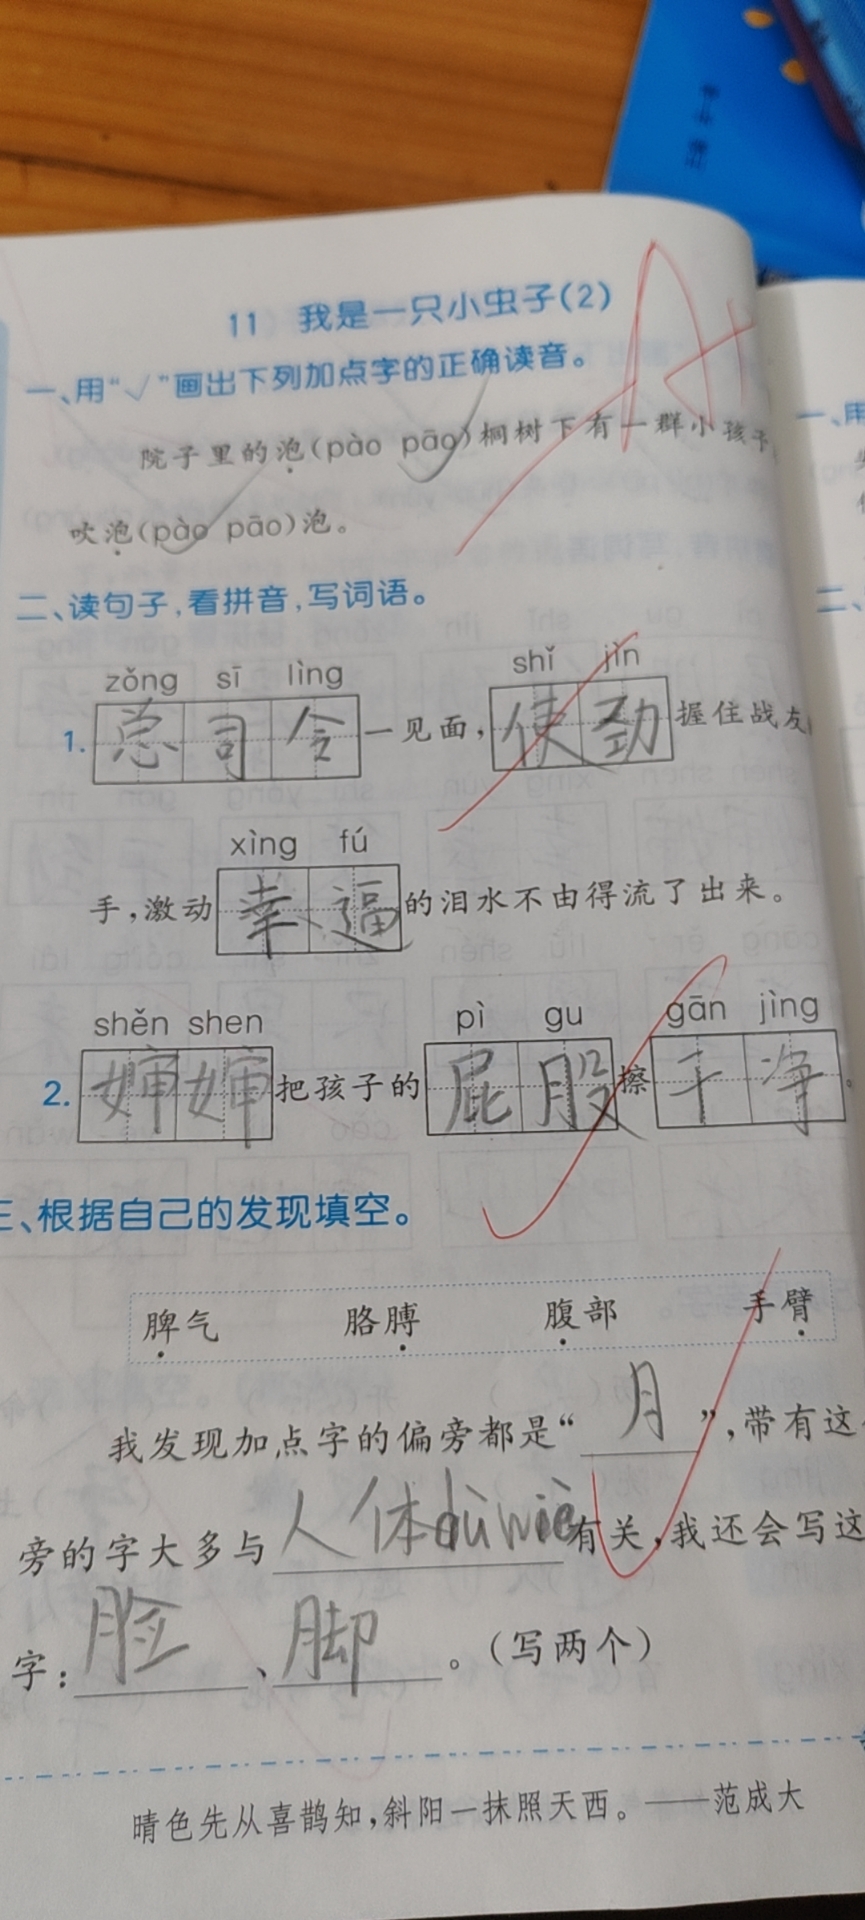 11 我是一只小虫子(2)
A+
一、用“√”画出下列加点字的正确读音。
院子里的泡(pào pāo)桐树下有一群小孩子
吹泡(pào pāo)泡。
二、读句子,看拼音,写词语。
zǒng sī lìng shǐ jìn
1. 总司令一见面,使劲握住战友
xìng fú
手,激动幸逼的泪水不由得流了出来。
shěn shen pì gu gān jìng
2. 婶婶把孩子的屁股擦干净。
三、根据自己的发现填空。
脾气 胳膊 腹部 手臂
我发现加点字的偏旁都是“月”,带有这
旁的字大多与人体bùwèi有关,我还会写这
字:脸、脚。(写两个)
晴色先从喜鹊知,斜阳一抹照天西。——范成大
一、用
二、